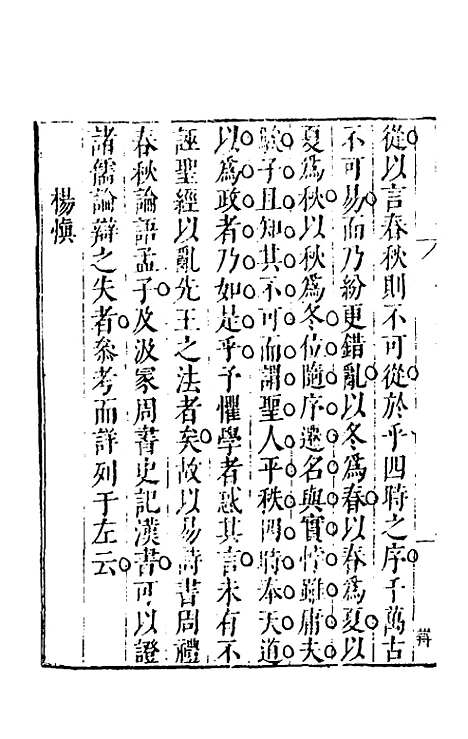 從以言春秋則不可從於乎四時之序千萬古
不可易而乃紛更錯亂以冬爲春以春爲夏以
夏爲秋以秋爲冬位隨序遷名與實悖雖庸夫
騃子且知其不可而謂聖人平秩四時奉天道
以爲政者乃如是乎予懼學者惑其言未有不
誣聖經以亂先王之法者矣故以易詩書周禮
春秋論語孟子及汲冢周書史記漢書可以證
諸儒論辯之失者叅考而詳列于左云
楊慎